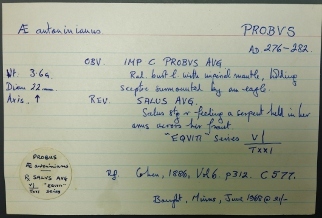 Æ antoninianus
PROBVS
AD 276-282.
OBV. IMP C PROBVS AVG
Wt. 3.6g. Rad. bust l. with imperial mantle, holding
Diam 22mm sceptre surmounted by an eagle.
Axis. ↑ REV. SALUS AVG.
Salus stg r feeding a serpent held in her
arms across her front.
"EQVITI" series VI
TXXI
PROBUS
Æ antoninianus
R SALUS AVG
VI "EQVITI"
TXXI series
Rf. Cohen, 1886, Vol 6. p312. C 577.
Bought, June 1968 @